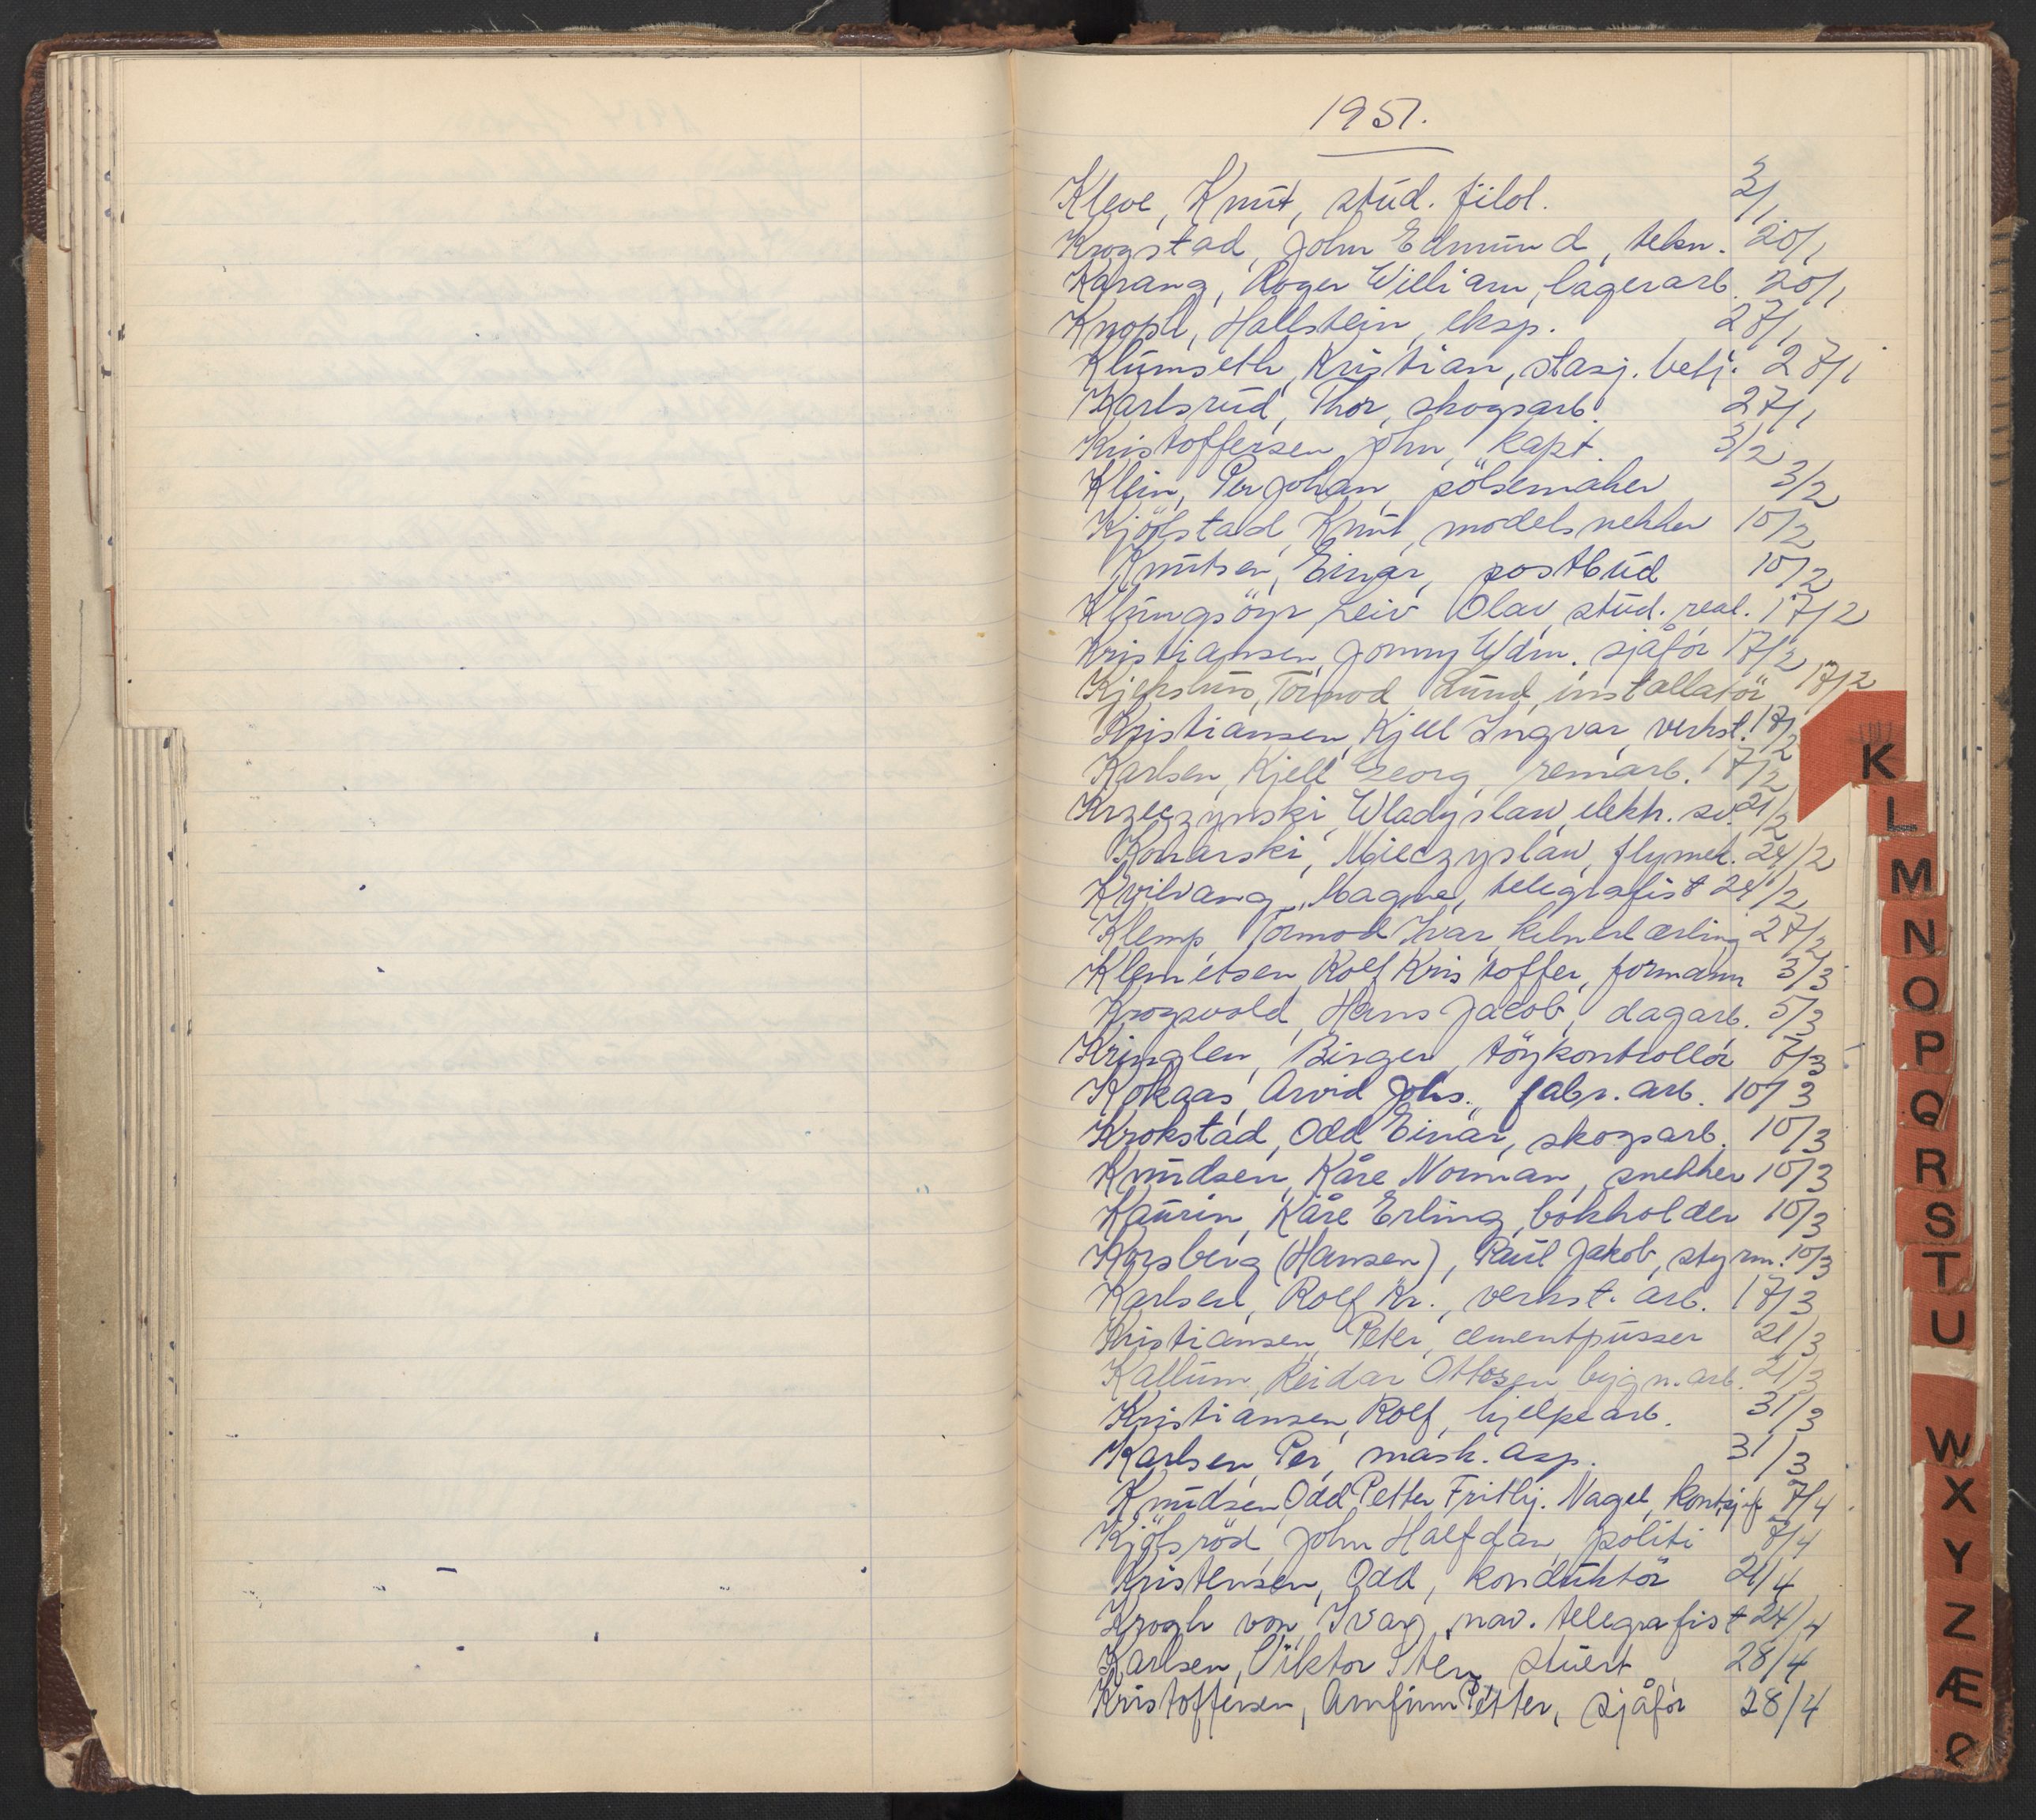 1951.
Kleve, Knut, stud. filol. 3/1
Krogstad, John Edmund, tekn. 20/1
Karang, Roger William, lagerarb. 20/1
Knoph, Hallstein, eksp. 27/1
Klumseth, Kristian, stasj. betj. 27/1
Karlsrud, Thor, skogsarb. 27/1
Kristoffersen, John, kapt. 3/2
Klein, Per Johan, pölsemaker 3/2
Kjölstad, Knut, modelsnekker 10/2
Knutsen, Einar, postbud 10/2
Klungsöyr, Leiv Olav, stud. real. 17/2
Kristiansen, Jonny Wdm. sjåför 17/2
Kjekshus, Tormod Lund, installatör 17/2
Kristiansen, Kjell Ingvar, verkst. 17/2
Karlsen, Kjell Georg, remarb. 17/2
Krzeczynski, Wladyslaw, elektr. sv. 21/2
Konarski, Mieczyslaw, flymek. 24/2
Kvilvang, Magne, telegrafist 24/2
Klemp, Tormod Ivar, kelnerlærling 27/2
Klemetsen, Rolf Kristoffer, formann 3/3
Krogsvold, Hans Jacob, dagarb. 5/3
Kringlen, Birger, töykontrollör 8/3
Kokaas, Arvid Johs., fabr. arb. 10/3
Krokstad, Odd Einar, skogsarb. 10/3
Knudsen, Kåre Norman, snekker 10/3
Kaurin, Kåre Erling, bokholder 10/3
Korsberg (Hansen), Paul Jakob, styrm. 10/3
Karlsen, Rolf Kr., verkst. arb. 17/3
Kristiansen, Peter, cementpusser 21/3
Kallum, Reidar Ottosen, bygn. arb. 21/3
Kristiansen, Rolf, hjelpearb. 31/3
Karlsen, Per, mask. asp. 31/3
Knudsen, Odd Petter Frithj. Nagel, 7/4
Kjölsröd, John Halfdan, politi 7/4
Kristensen, Odd, konduktör 21/4
Krogh von, Ivar, nav. telegrafist 24/4
Karlsen, Viktor Sten, stuert 28/4
Kristoffersen, Arnfinn Petter, sjåför 28/4
K
L
M
N
O
P
Q
R
S
T
U
W
X
Y
Z
Æ